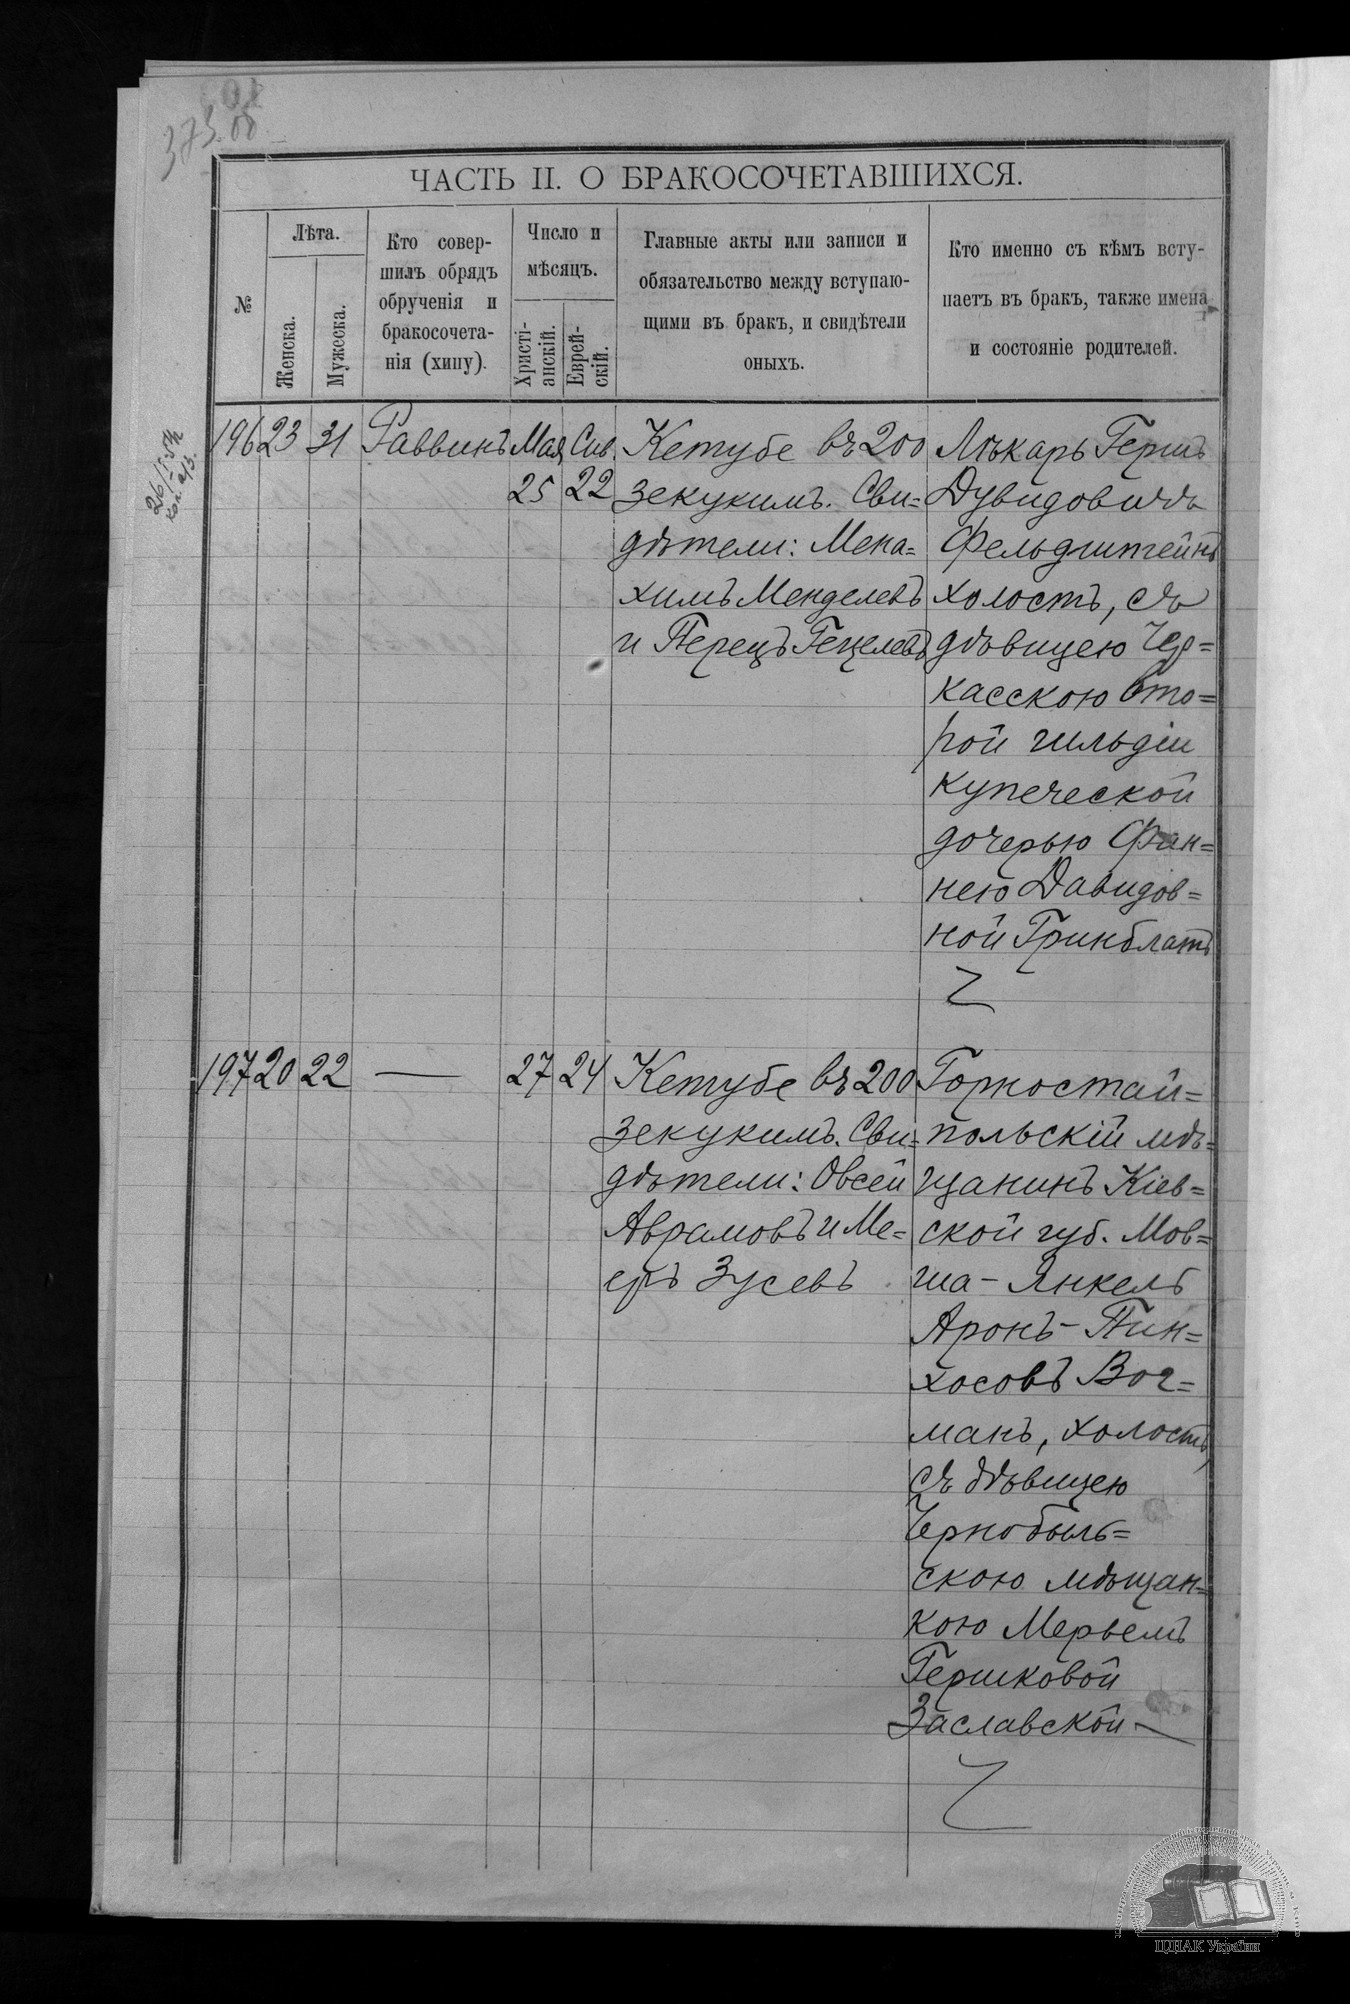 373 об.
ЧАСТЬ II. О БРАКОСОЧЕТАВШИХСЯ.
№
Лѣта.
Женска.
Мужеска.
Кто совер-
шилъ обрядъ
обрученія и
бракосочета-
нія (хипу).
Число и
мѣсяцъ.
Христі-
анскій.
Еврей-
скій.
Главные акты или записи и
обязательство между вступаю-
щими въ бракъ, и свидѣтели
оныхъ.
Кто именно съ кѣмъ всту-
паетъ въ бракъ, также имена
и состояніе родителей.
196 23 31 Раввинъ Мая Сив.
25 22
Кетубе въ 200
зекукимъ. Сви=
дѣтели: Мена=
химъ Менделевъ
и Перецъ Гецелевъ
Лѣкарь Гершъ
Дувидовичъ
Фельдштейнъ
холостъ, съ
дѣвицею Чер=
касскою вто=
рой гильдіи
купеческой
дочерью Фан=
нею Давидов=
ной Гринблатъ
197 20 22 — 27 24
Кетубе въ 200
зекукимъ. Сви=
дѣтели: Овсей
Аврамовъ и Ме=
еръ Зусевъ
Горностай=
польскій мѣ=
щанинъ Кіев=
ской губ. Мов=
ша-Янкель
Аронъ-Пин=
хосовъ Вог=
манъ, холостъ,
съ дѣвицею
Чернобыль=
скою мѣщан=
кою Мерьемъ
Гершковой
Заславской
ЦДІАК України